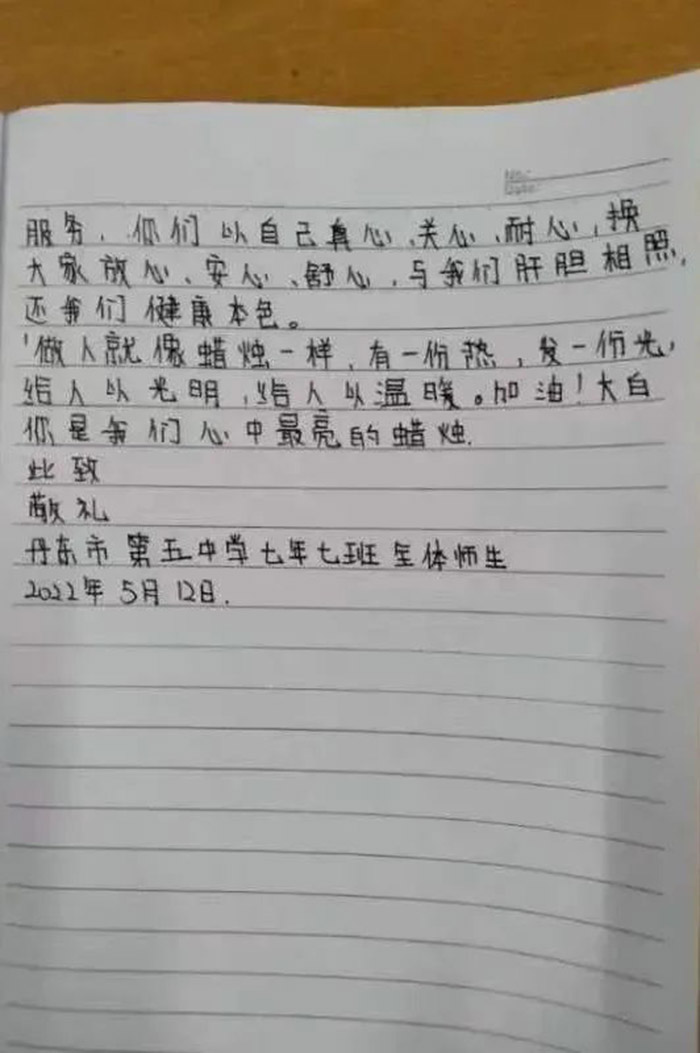 No:
Date:
服务，你们以自己真心、关心、耐心，换
大家放心、安心、舒心，与我们肝胆相照，
还我们健康本色。
'做人就像蜡烛一样，有一份热，发一份光，
给人以光明，给人以温暖。加油！大白
你是我们心中最亮的蜡烛.
此致
敬礼
丹东市第五中学七年七班全体师生
2022年5月12日.